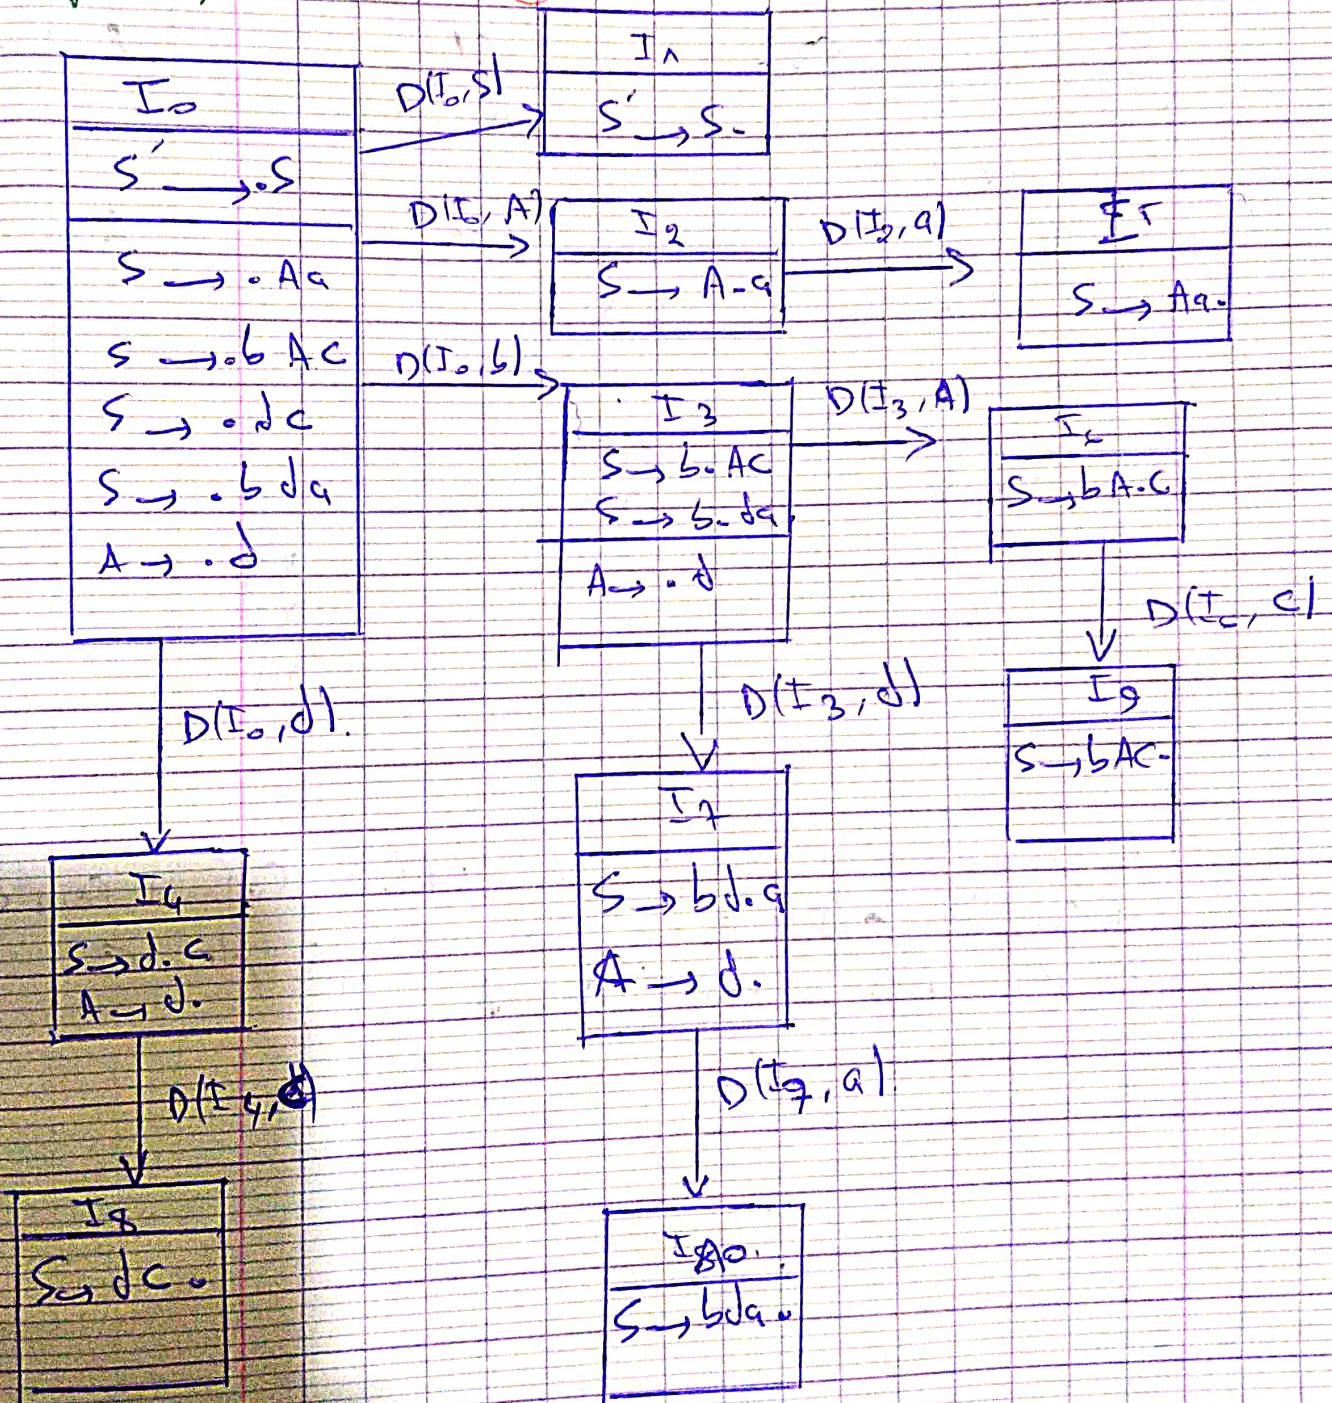 I0
S' → .S
S → .Aa
S → .bAc
S → .dc
S → .bda
A → .d
D(I0, S)
I1
S' → S.
D(I0, A)
I2
S → A.a
D(I2, a)
I5
S → Aa.
D(I0, b)
I3
S → b.Ac
S → b.da
A → .d
D(I3, A)
I6
S → bA.c
D(I6, c)
I9
S → bAc.
D(I0, d).
I4
S → d.c
A → d.
D(I3, d)
I7
S → bd.a
A → d.
D(I4, )
I8
S → dc.
D(I7, a).
I10.
S → bda.